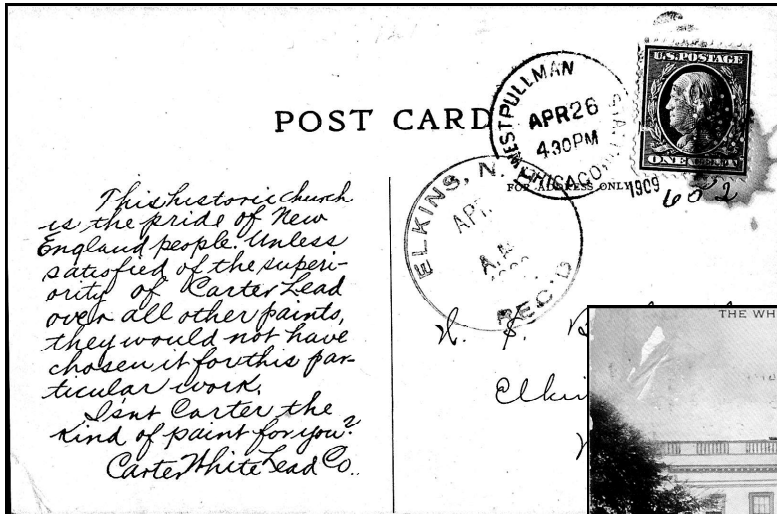 POST CARD
WEST PULLMAN
APR 26
4.30 PM
CHICAGO,
1909
U.S. POSTAGE
ONE
FOR ADDRESS ONLY
602
ELKINS, N.
A.M
REC'D
This historic church
is the pride of New
England people. Unless
satisfied of the superi-
ority of Carter Lead
over all other paints,
they would not have
chosen it for this par-
ticular work.
Isn't Carter the
kind of paint for you?
Carter White Lead Co.
H. S. B
Elki
THE WH